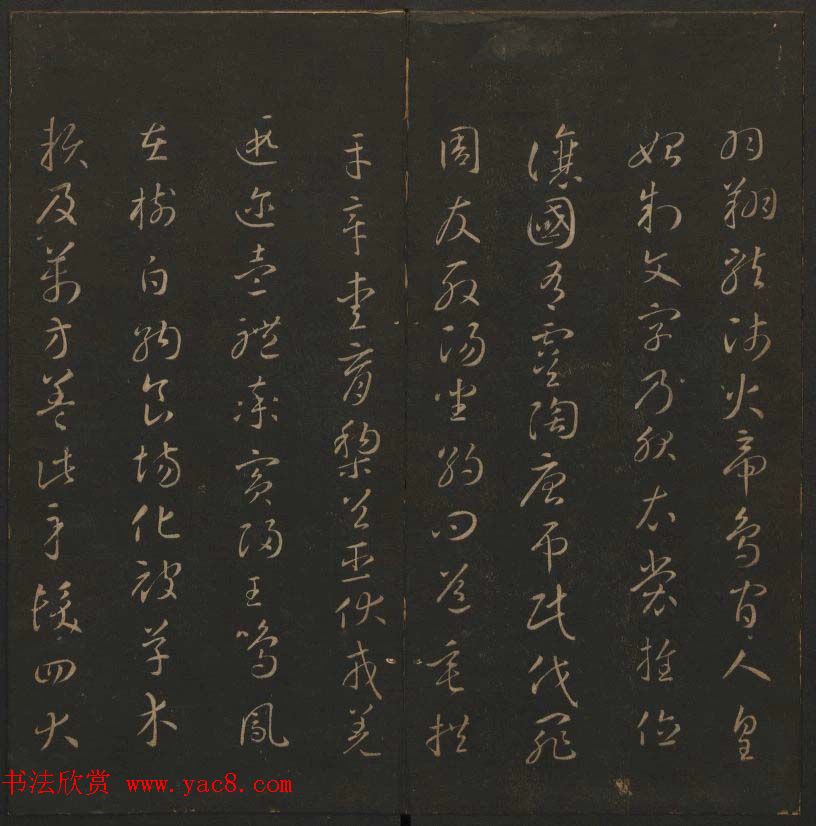 羽翔龍師火帝鳥官人皇
始制文字乃服衣裳推位
讓國有虞陶唐吊民伐罪
周發殷湯坐朝問道垂拱
平章愛育黎首臣伏戎羌
遐邇壹體率賓歸王鳴鳳
在樹白駒食場化被草木
賴及萬方蓋此身髮四大
书法欣赏 www.yac8.com